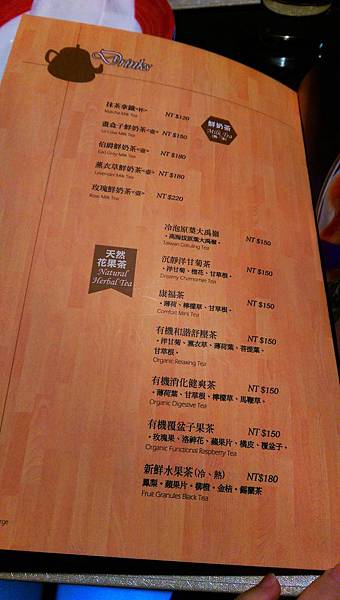 Drinks
鮮奶茶
Milk Tea
抹茶拿鐵<杯> NT $120
Matcha Milk Tea
NT $180
La Cuba Milk Tea
伯爵鮮奶茶<壺> NT $180
Earl Grey Milk Tea
薰衣草鮮奶茶<壺> NT $180
Lavender Milk Tea
玫瑰鮮奶茶<壺> NT $220
Rose Milk Tea
天然
花果茶
Natural
Herbal Tea
冷泡原葉大禹嶺 NT $150
・高海拔原葉大禹嶺。
Taiwan Dauling Tea
沉靜洋甘菊茶 NT $150
・洋甘菊、橙花、甘草根。
Dreamy Chamomile Tea
康福茶 NT $150
・薄荷、檸檬草、甘草根。
Comfort Mint Tea
有機和諧舒壓茶 NT $150
・洋甘菊、薰衣草、薄荷葉、菩提葉、
甘草根。
Organic Relaxing Tea
有機消化健爽茶 NT $150
・薄荷葉、甘草根、檸檬草、馬鞭草。
Organic Digestive Tea
有機覆盆子果茶 NT $150
・玫瑰果、洛神花、蘋果片、橘皮、覆盆子。
Organic Functional Raspberry Tea
新鮮水果茶(冷、熱) NT$180
鳳梨・蘋果片・柳橙・金桔・錫蘭茶
Fruit Granules Black Tea